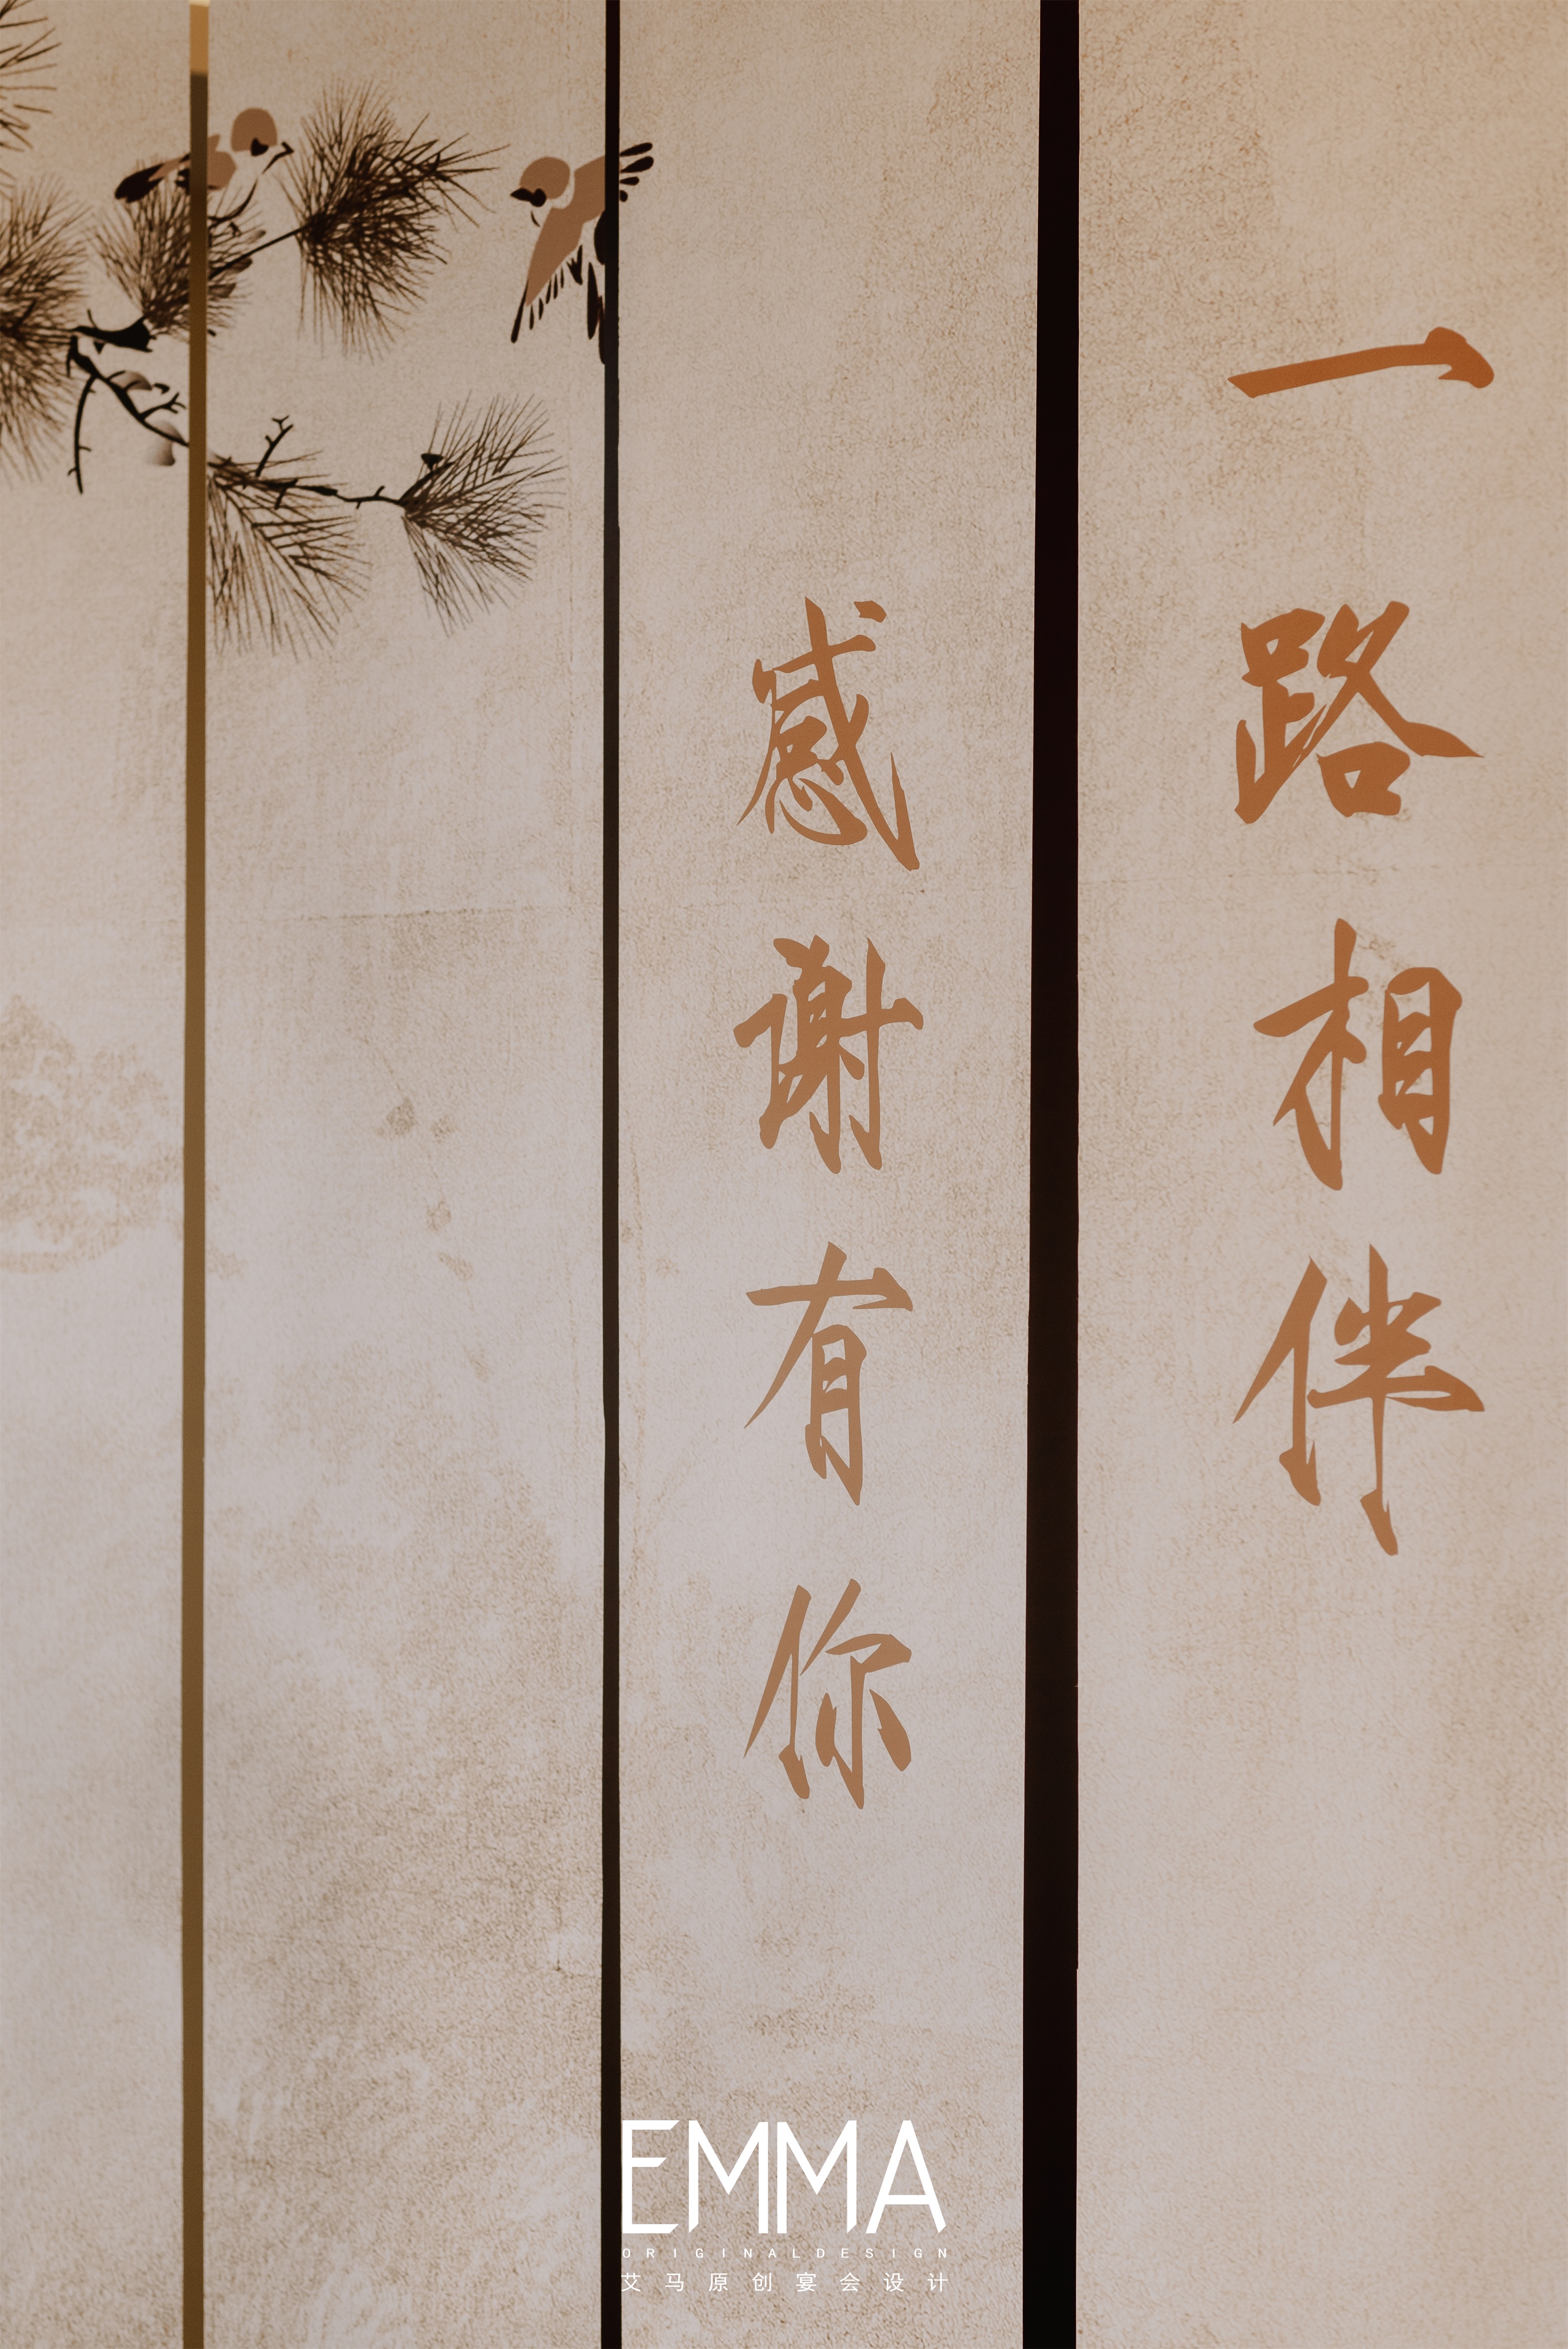 一路相伴
感谢有你
EMMA
ORIGINALDESIGN
艾马原创宴会设计